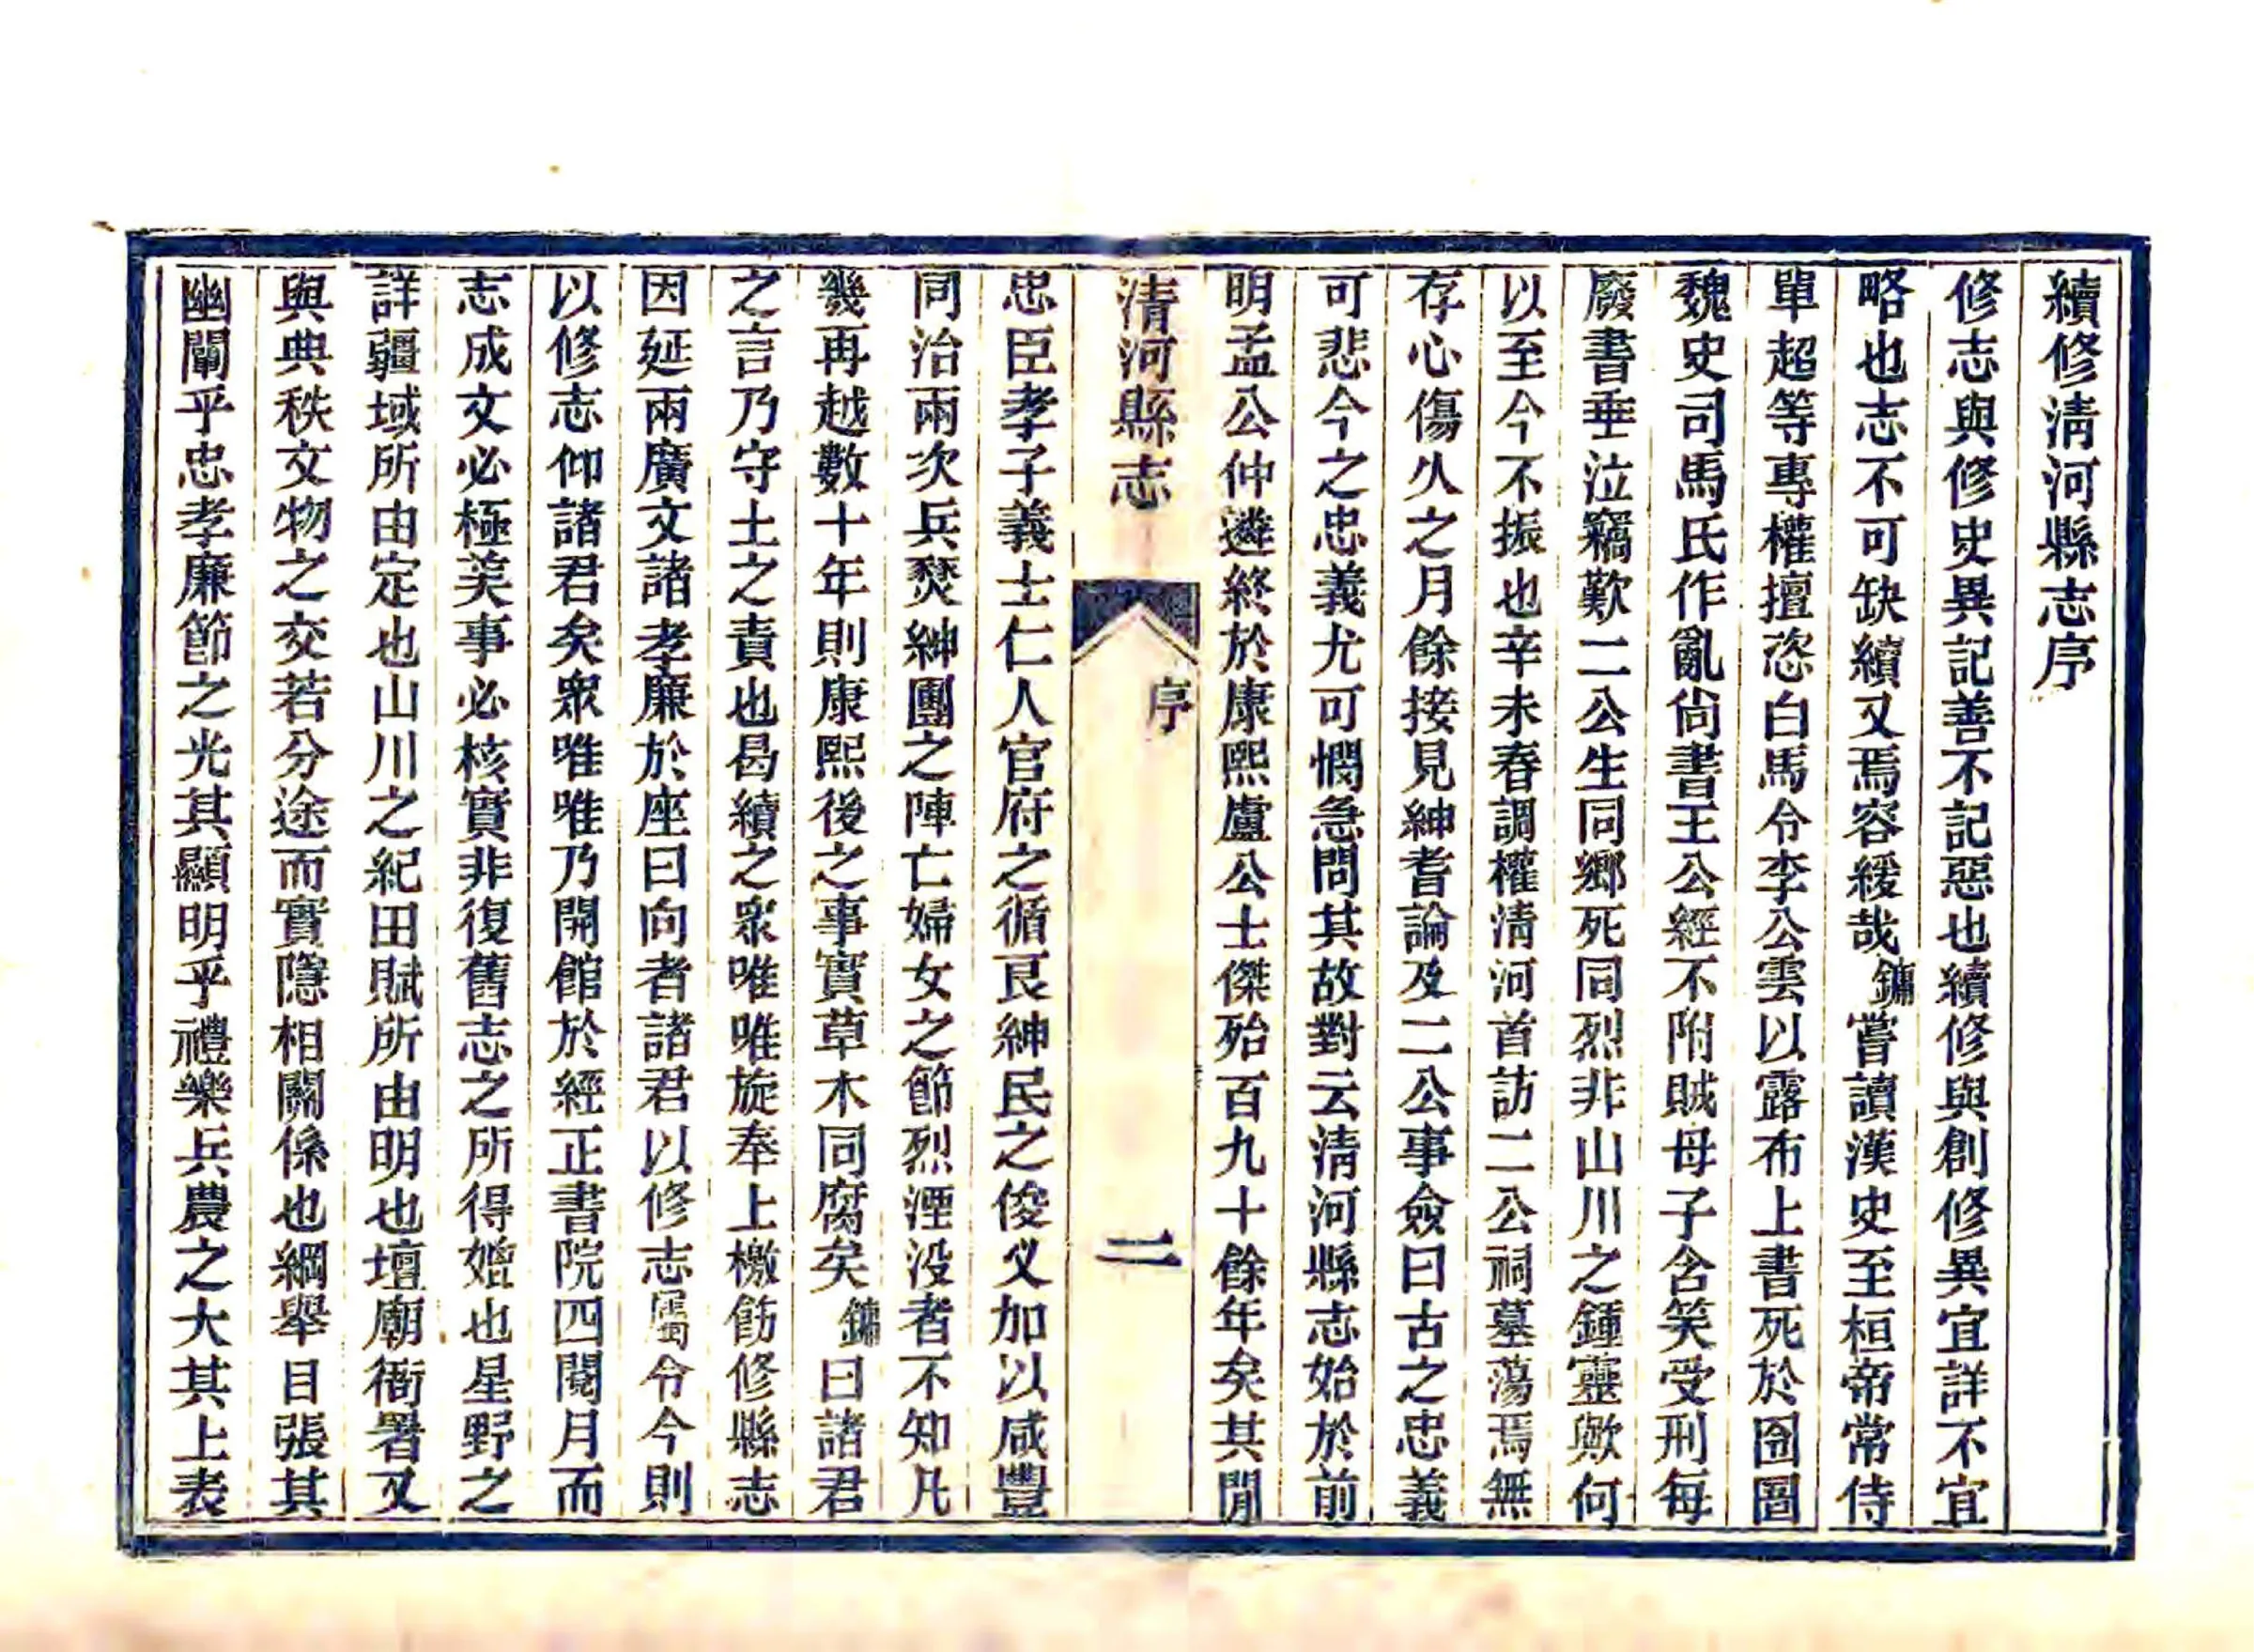 續修清河縣志序
修志與修史異記善不記惡也續修與創修異宜詳不宜
略也志不可缺續又焉容緩哉鏞嘗讀漢史至桓帝常侍
單超等專權擅恣白馬令李公雲以露布上書死於囹圄
魏史司馬氏作亂尙書王公經不附賊母子含笑受刑每
廢書垂泣竊歎二公生同鄉死同烈非山川之鍾靈歟何
以至今不振也辛未春調權清河首訪二公祠墓蕩焉無
存心傷久之月餘接見紳耆論及二公事僉曰古之忠義
可悲今之忠義尤可憫急問其故對云清河縣志始於前
明孟公仲遴終於康熙盧公士傑殆百九十餘年矣其閒
清河縣志
序
二
忠臣孝子義士仁人官府之循良紳民之俊义加以咸豐
同治兩次兵燹紳團之陣亡婦女之節烈湮没者不知凡
幾再越數十年則康熙後之事實草木同腐矣鏞曰諸君
之言乃守土之責也曷續之衆唯唯旋奉上檄飭修縣志
因延兩廣文諸孝廉於座曰向者諸君以修志屬令今則
以修志仰諸君矣衆唯唯乃開館於經正書院四閱月而
志成文必極美事必核實非復舊志之所得媲也星野之
詳疆域所由定也山川之紀田賦所由明也壇廟衙署又
與典秩文物之交若分途而實隱相關係也綱舉目張其
幽闡乎忠孝廉節之光其顯明乎禮樂兵農之大其上表